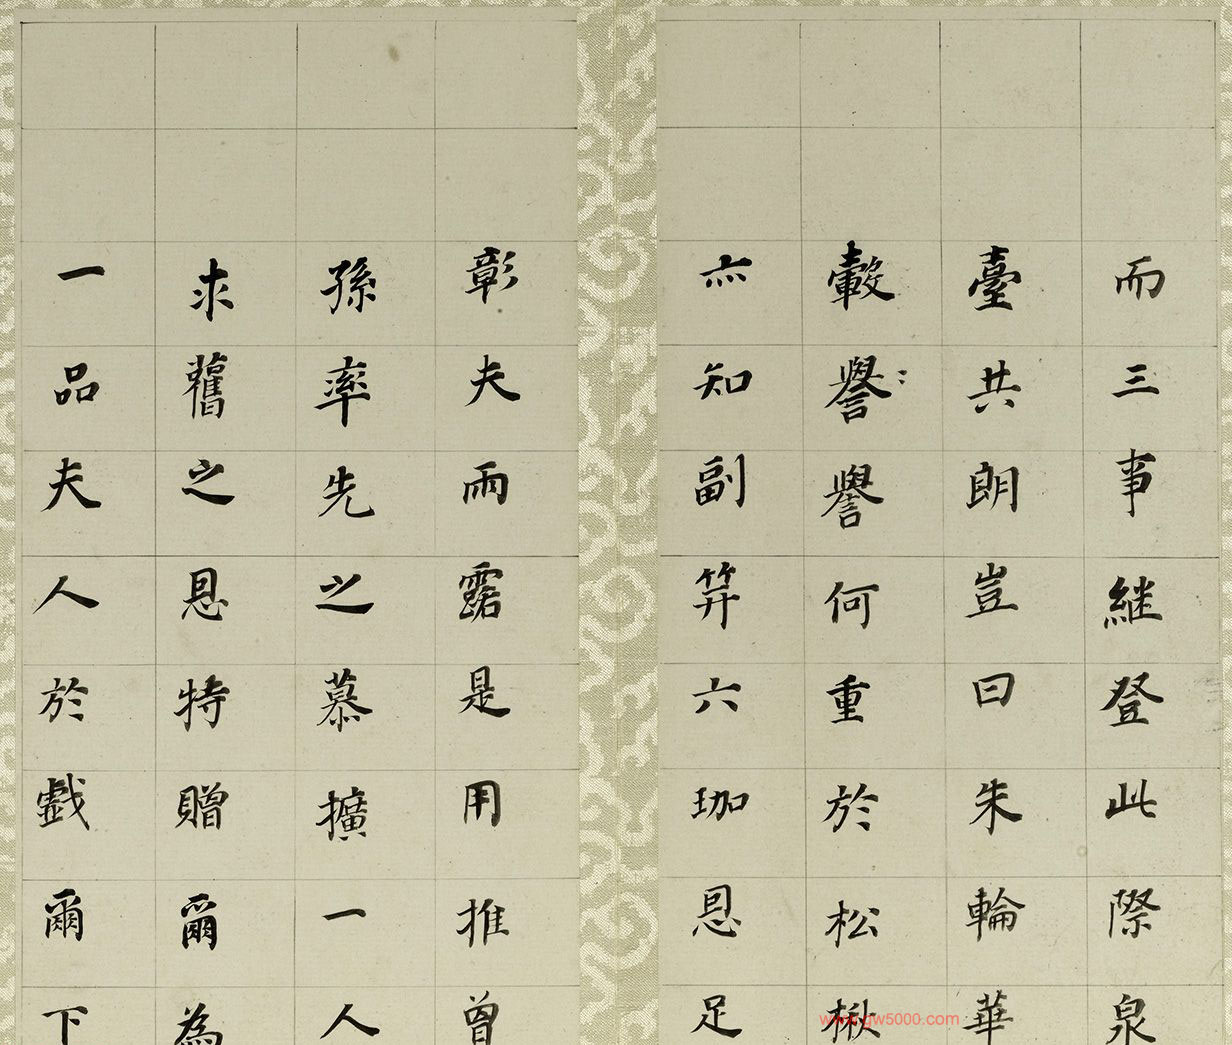 而三事継登此際泉
臺共朗豈曰朱輪華
轂譽譽何重於松楸
亦知副笄六珈恩足
彰夫雨露是用推曾
孫率先之慕擴一人
求舊之恩特贈爾為
一品夫人於戲爾下
www.gw5000.com